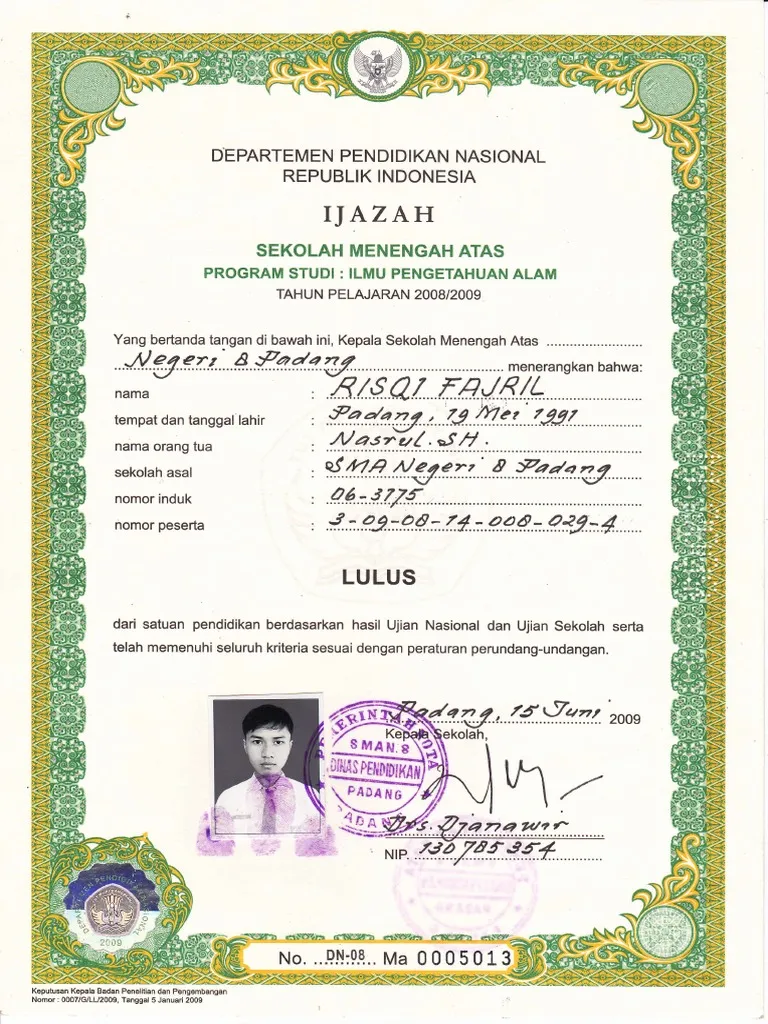 DEPARTEMEN PENDIDIKAN NASIONAL
REPUBLIK INDONESIA
IJAZAH
SEKOLAH MENENGAH ATAS
PROGRAM STUDI : ILMU PENGETAHUAN ALAM
TAHUN PELAJARAN 2008/2009
Yang bertanda tangan di bawah ini, Kepala Sekolah Menengah Atas ......................
Negeri 8 Padang menerangkan bahwa:
nama : RISQI FAJRIL
tempat dan tanggal lahir : Padang, 19 Mei 1991
nama orang tua : Nasrul. SH.
sekolah asal : SMA Negeri 8 Padang
nomor induk : 06-3775
nomor peserta : 3-09-08-14-008-029-4
LULUS
dari satuan pendidikan berdasarkan hasil Ujian Nasional dan Ujian Sekolah serta
telah memenuhi seluruh kriteria sesuai dengan peraturan perundang-undangan.
Padang, 15 Juni 2009
Kepala Sekolah,
PEMERINTAH KOTA
SMAN. 8
DINAS PENDIDIKAN
PADANG
PADANG
Drs. Djanawir
NIP. 130785354
DEPARTEMEN PENDIDIKAN NASIONAL
2009
No. DN-08 Ma 0005013
Keputusan Kepala Badan Penelitian dan Pengembangan
Nomor : 0007/G/LL/2009, Tanggal 5 Januari 2009